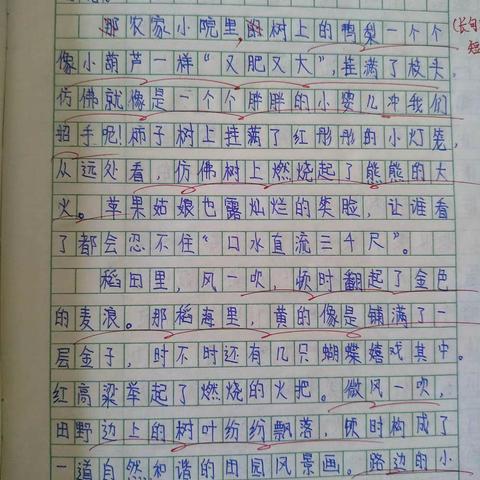 那农家小院里,树上的鸭梨一个个
像小葫芦一样“又肥又大”,挂满了枝头,
仿佛就像是一个个胖胖的小婴儿冲我们
招手呢!柿子树上挂满了红彤彤的小灯笼,
从远处看,仿佛树上燃烧起了熊熊的大
火。苹果姑娘也露灿烂的笑脸,让谁看
了都会忍不住“口水直流三千尺”。
稻田里,风一吹,顷时翻起了金色
的麦浪。那稻海里,黄的像是铺满了一
层金子,时不时还有几只蝴蝶嬉戏其中。
红高梁举起了燃烧的火把。微风一吹,
田野边上的树叶纷纷飘落,顷时构成了
一道自然和谐的田园风景画。路边的小